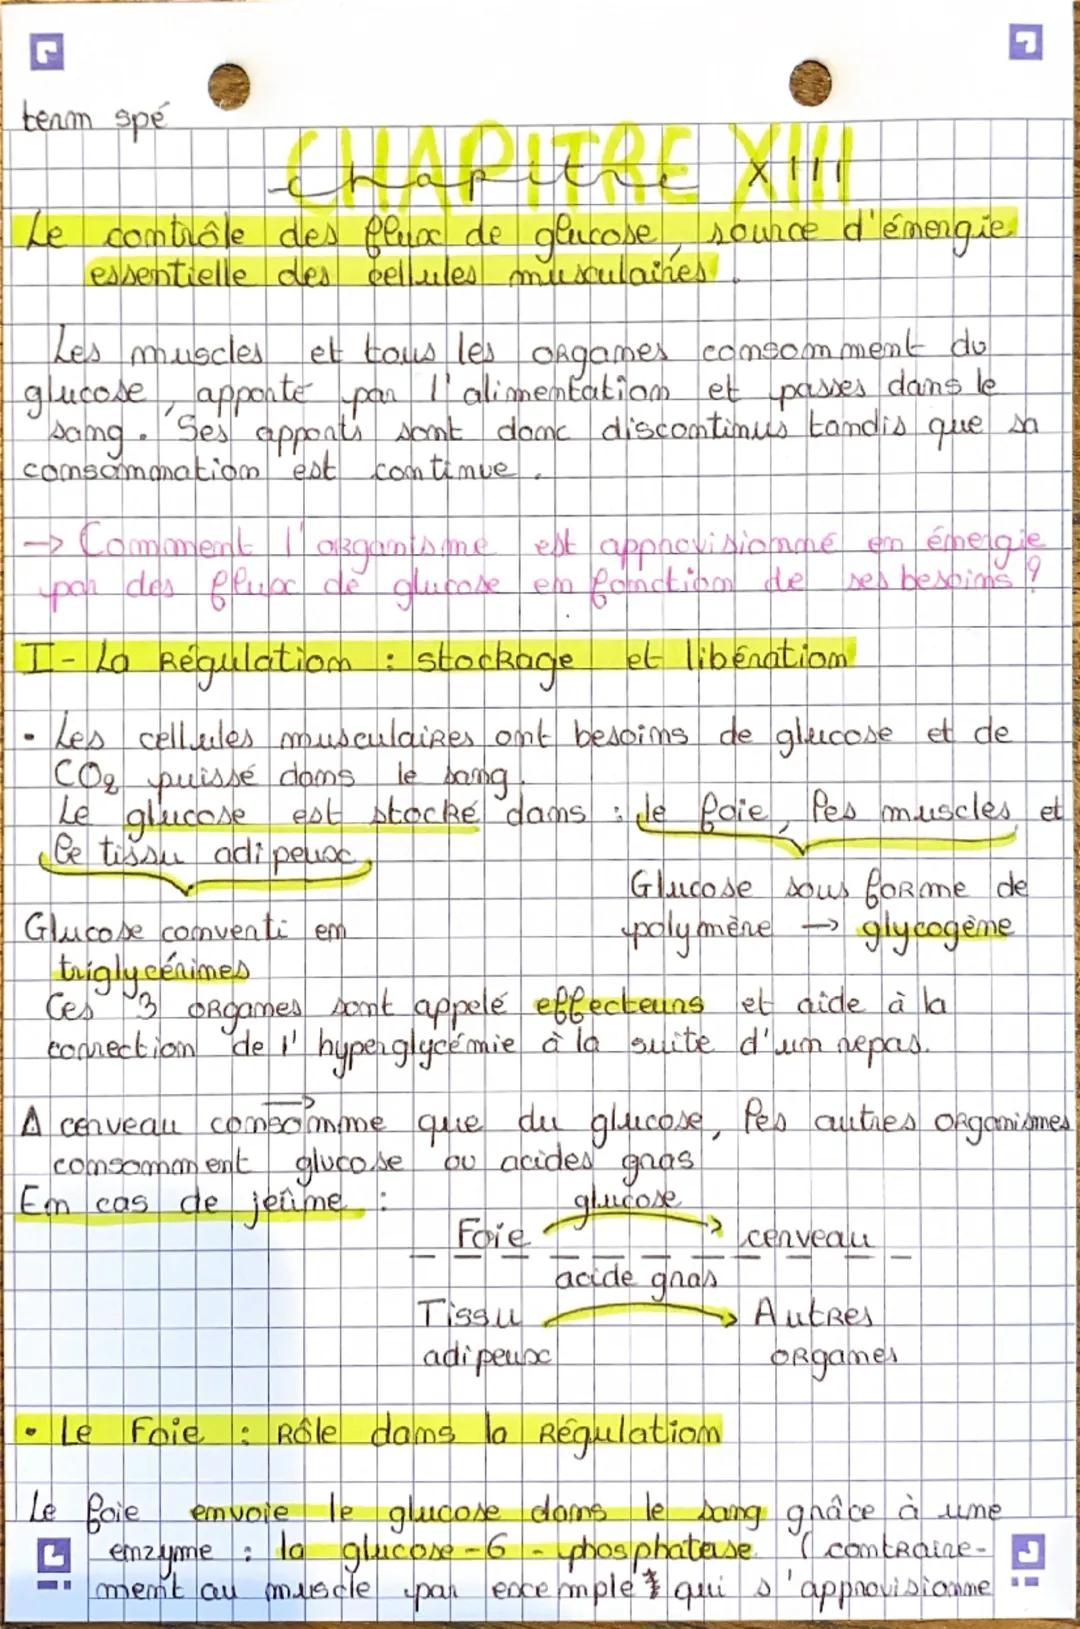 term spé
CHAPITRE XIII
chapitre XIII
Le contrôle des flux de glucose, source d'énergie
essentielle des cellules musculaires.
Les muscles et tous les organes consomment du
glucose, apporté par l'alimentation et passes dans le
sang. Ses apports sont donc discontinus tandis que sa
consommation est continue.
-> Comment l'organisme est approvisionné en énergie
par des flux de glucose en fonction de ses besoins ?
I - La Régulation : stockage et libération
• Les cellules musculaires ont besoins de glucose et de
CO2 puissé dans le sang.
Le glucose est stocké dans : le foie, les muscles et
le tissu adipeux
Glucose sous forme de
polymère -> glycogène
Glucose converti en
triglycérimes
Ces 3 organes sont appelé effecteurs et aide à la
correction de l'hyperglycémie à la suite d'un repas.
Δ cerveau consomme que du glucose, les autres organismes
consomment glucose ou acides gras
En cas de jeûne :
glucose
Foie -> cerveau
acide gras
Tissu -> Autres
adipeux organes
• Le Foie : Rôle dans la Régulation
Le foie envoie le glucose dans le sang grâce à une
enzyme : la glucose-6-phosphatase (contraire-
ment au muscle par exemple qui s'approvisionne